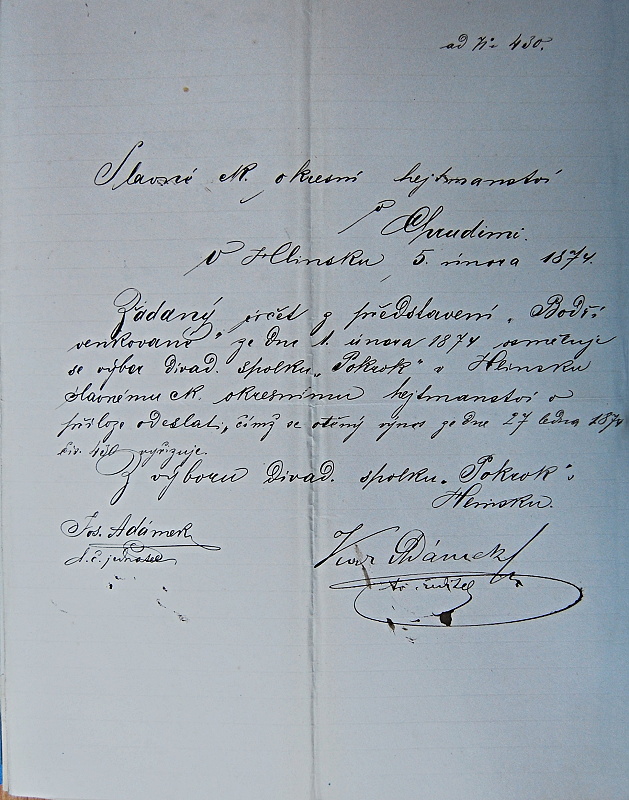 ad No 430.
Slavné ck. okresní hejtmanství
v Chrudimi.
V Hlinsku 5. února 1874.
Žádaný účet z představení „Bodří
venkované" ze dne 1. února 1874 osměluje
se výbor divad. spolku „Pokrok" v Hlinsku
slavnému ck. okresnímu hejtmanství v
příloze odeslati, čímž se ctěný výnos ze dne 27 ledna 1874
čís. 430 vyřizuje.
Z výboru divad. spolku „Pokrok" v
Hlinsku.
Jos. Adámek
d. č. jednatel
Adámek
ředitel